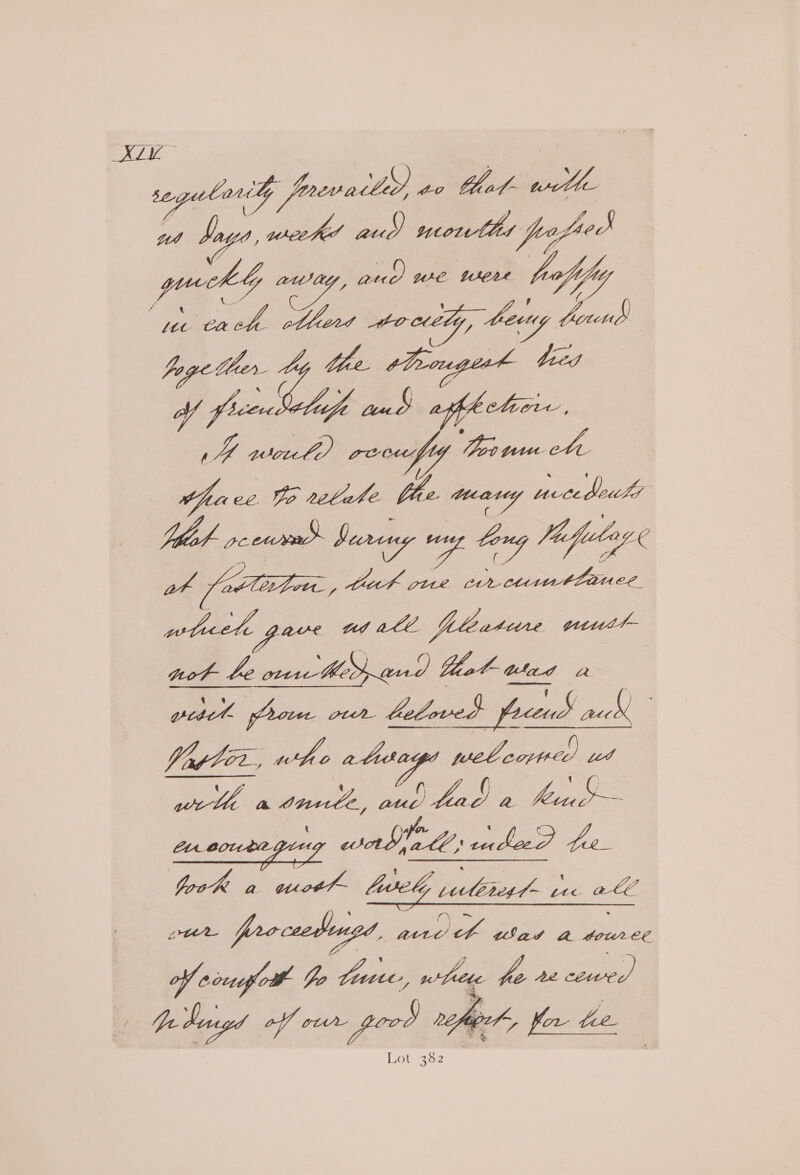 XLV.
regularity prevailed, so that with
us days, weeks and months passed
quickly away, and we were happy
in each others society, being bound
together by the strongest ties
of friendship and affection.
It would occupy too much
space to relate the many incidents
that occurred during my long Pupilage
at Easterton, but one circumstance
which gave us all pleasure must
not be omitted, and that was a
visit from our beloved friend and
Pastor, who always welcomed us
with a smile, and had a kind
encouraging word for all; indeed he
took a most lively interest in all
our proceedings, and it was a source
of comfort to him, when he received
tidings of our good report, for he
Lot 382